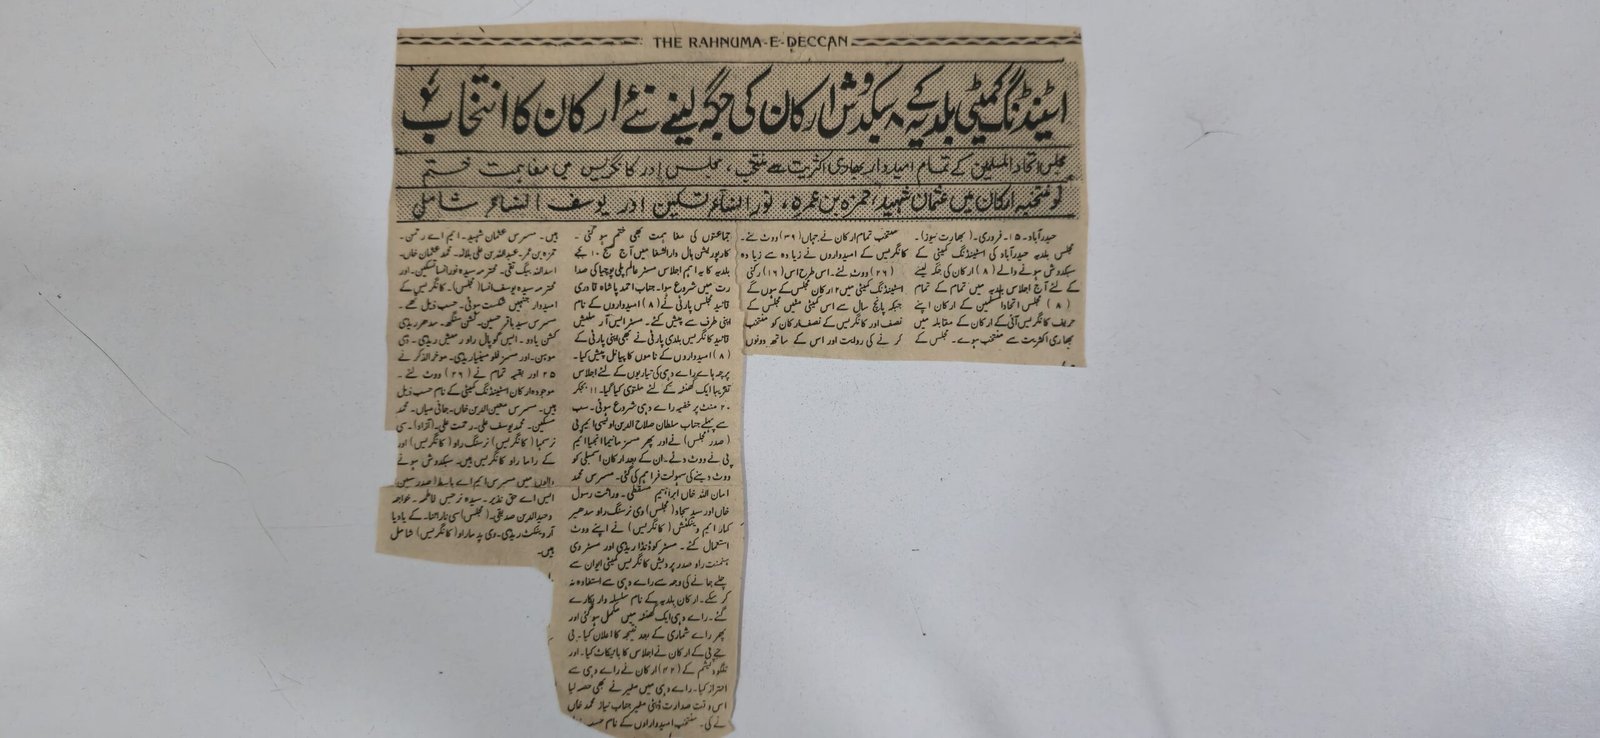 THE RAHNUMA-E-DECCAN
اسٹینڈنگ کمیٹی بلدیہ کے ۸ سبکدوش ارکان کی جگہ لینے نئے ارکان کا انتخاب
مجلس اتحاد المسلمین کے تمام امیدوار بھاری اکثریت سے منتخب، مجلس اور کانگریس میں مفاہمت ختم
نو منتخبہ ارکان میں عثمان شہید، حمزہ بن عمر، نور النساء تسکین اور یوسف النساء شامل
حیدرآباد۔ ۱۵۔ فروری۔ (بھارت نیوز)۔
مجلس بلدیہ حیدرآباد کی اسٹینڈنگ کمیٹی کے
سبکدوش ہونے والے (۸) ارکان کی جگہ لینے
کے لئے آج اجلاس بلدیہ میں تمام کے تمام
(۸) مجلس اتحاد المسلمین کے ارکان اپنے
حریف کانگریس آئی کے ارکان کے مقابلہ میں
بھاری اکثریت سے منتخب ہوے۔ مجلس کے
منتخب تمام ارکان نے جہاں (۳۹) ووٹ لئے۔
کانگریس کے امیدواروں نے زیادہ سے زیادہ
(۲۶) ووٹ لئے۔ اس طرح اس (۱۶) رکنی
اسٹینڈنگ کمیٹی میں ۱۲ ارکان مجلس کے ہوں گے
جبکہ پانچ سال سے اس کمیٹی میں مجلس کے
نصف اور کانگریس کے نصف ارکان کو منتخب
کرنے کی روایت اور اس کے ساتھ دونوں
جماعتوں کی مفاہمت بھی ختم ہو گئی۔
کارپوریشن ہال دارالشفا میں آج صبح ۱۰ بجے
بلدیہ کا یہ اہم اجلاس مسٹر عالم پلی پوچیا کی صدا
رت میں شروع ہوا۔ جناب احمد پاشاہ قادری
قائد مجلس پارٹی نے (۸) امیدواروں کے نام
اپنی طرف سے پیش کئے۔ مسٹر ایس آر ستیش
قائد کانگریس بلدی پارٹی نے بھی اپنی پارٹی کے
(۸) امیدواروں کے ناموں کا پیانل پیش کیا۔
پرچہ ہاے راے دہی کی تیاریوں کے لئے اجلاس
تقریباً ایک گھنٹہ کے لئے ملتوی کیا گیا۔ ۱۱ بجکر
۲۰ منٹ پر خفیہ راے دہی شروع ہوئی۔ سب
سے پہلے جناب سلطان صلاح الدین اویسی ایم پی
(صدر مجلس) نے اور پھر مسز مانیما انجیا ایم
پی نے ووٹ دئے۔ ان کے بعد ارکان اسمبلی کو
ووٹ دینے کی سہولت فراہم کی گئی۔ مسرس محمد
امان اللہ خاں ابراہیم مسقطی۔ وراثت رسول
خاں اور سید سجاد (مجلس) وی نرسنگ راو سدھیر
کمار ایم (کانگریس) نے اپنے ووٹ
استعمال کئے۔ مسٹر کوڈنڈا ریڈی اور مسٹر وی
ہنمنت راو صدر پردیش کانگریس کمیٹی ایوان سے
چلے جانے کی وجہ سے راے دہی سے استفادہ نہ
کر سکے۔ ارکان بلدیہ کے نام سلسلہ وار پکارے
گئے۔ راے دہی ایک گھنٹہ میں مکمل ہو گئی اور
پھر راے شماری کے بعد نتیجہ کا اعلان کیا۔ بی
جے پی کے ارکان نے اجلاس کا بائیکاٹ کیا۔ اور
تلگو دیشم کے ارکان نے راے دہی سے
احتراز کیا۔ راے دہی میں میئر نے بھی حصہ لیا
اس وقت صدارت ڈپٹی میئر جناب نیاز محمد خاں
نے کی۔ منتخب امیدواروں کے نام حسب
ہیں۔ مسرس عثمان شہید۔ ایم اے رحمن۔
حمزہ بن عمر۔ عبداللہ بن علی بلالہ۔ محمد عثمان خاں۔
اسد اللہ بیگ تقی۔ محترمہ سیدہ نور النسا تسکین۔ اور
محترمہ سیدہ یوسف النسا (مجلس)۔ کانگریس کے
امیدوار جنہیں شکست ہوئی۔ حسب ذیل تھے۔
مسرس سید باقر حسین۔ کشن سنگھ۔ سدھر ریڈی
کشن یادو۔ ایس گوپال راو رمیش ریڈی۔ ڈی
موہن۔ اور مسز ریڈی۔ موخر الذکر نے
۲۵ اور بقیہ تمام نے (۲۶) ووٹ لئے۔
موجودہ ارکان اسٹینڈنگ کمیٹی کے نام حسب ذیل
ہیں۔ مسرس معین الدین خاں۔ جانی میاں۔ محمد
مسکین۔ محمد یوسف علی۔ رحمت علی۔ (آزاد)۔ سی
نرسمہا (کانگریس) نرسنگ راو (کانگریس) اور
کے راما راو کانگریس ہیں۔ سبکدوش ہونے
والوں میں مسرس ایم اے باسط صدر حسین
ایس اے حق نذیر۔ سیدہ نرجس فاطمہ۔ خواجہ
وحید الدین صدیقی۔ (مجلس) سی نارائنا۔ کے یادیا
آر وینکٹ ریڈی۔ وی پدماراو (کانگریس) شامل
ہیں۔